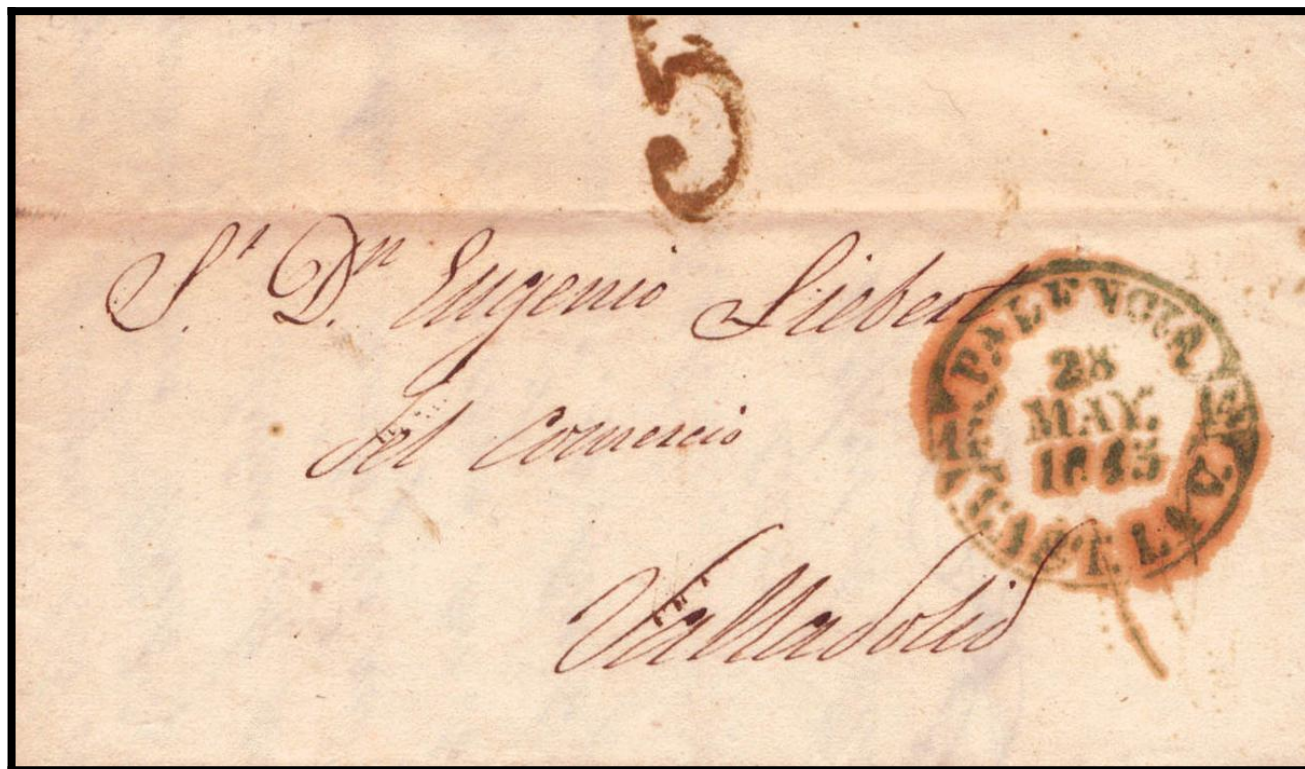 5
Sr. Dn. Eugenio Siebert
del Comercio
Valladolid
PALENCIA
MAY.
CAST. LA V.